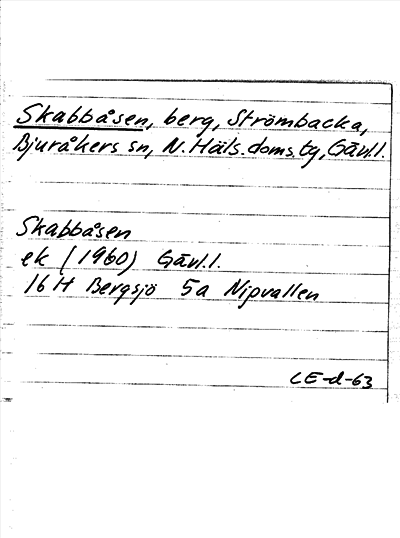 Skabbåsen, berg, Strömbacka,
Bjuråkers sn, N. Häls. doms. tg, Gävl.l.
Skabbåsen
ek (1960) Gävl.l.
16 H Bergsjö 5a Nipvallen
CE-d-63